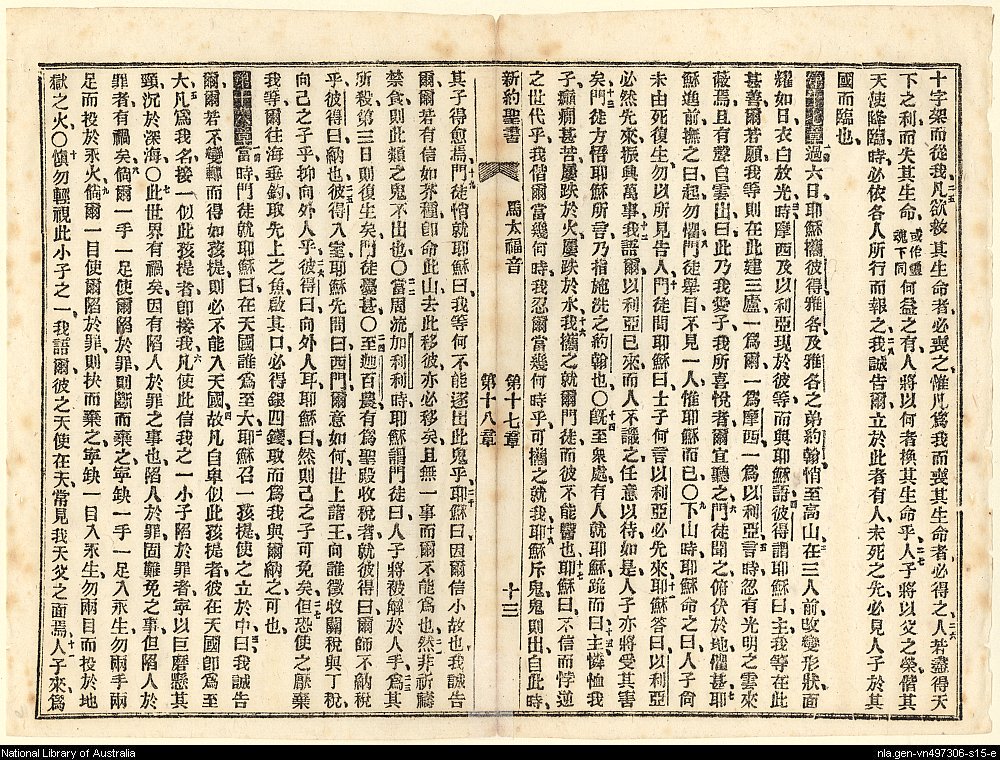 十字架而從我凡欲救其生命者必喪之惟凡爲我而喪其生命者必得之人若盡得天
下之利而失其生命或作靈魂下同何益之有人將以何者換其生命乎人子將以父之榮偕其
天使降臨時必依各人所行而報之我誠告爾立於此者有人未死之先必見人子於其
國而臨也
第十七章過六日耶穌攜彼得雅各及雅各之弟約翰悄至高山在三人前改變形狀面
耀如日衣白放光時摩西及以利亞現於彼等而與耶穌語彼得謂耶穌曰主我等在此
甚善爾若願我等則在此建三廬一爲爾一爲摩西一爲以利亞言時忽有光明之雲來
蔽焉且有聲自雲出曰此乃我愛子我所喜悅者爾宜聽之門徒聞之俯伏於地懼甚耶
穌進前撫之曰起勿懼門徒舉目不見一人惟耶穌而已〇下山時耶穌命之曰人子尙
未由死復生勿以所見告人門徒問耶穌曰士子何言以利亞必先來耶穌答曰以利亞
必然先來振興萬事我語爾以利亞已來而人不識之任意以待如是人子亦將受其害
矣門徒方悟耶穌所言乃指施洗之約翰也〇旣至衆處有人就耶穌跪而曰主憐恤我
子癲癇甚苦屢跌於火屢跌於水我攜之就爾門徒而彼不能醫也耶穌曰不信而悖逆
之世代乎我偕爾當幾何時我忍爾當幾何時乎可攜之就我耶穌斥鬼鬼則出自此時
新約聖書 馬太福音 第十七章 第十八章 十三
其子得愈焉門徒悄就耶穌曰我等何不能逐出此鬼乎耶穌曰因爾信小故也我誠告
爾爾若有信如芥種卽命此山去此移彼亦必移矣且無一事而爾不能爲也然非祈禱
禁食則此類之鬼不出也〇當周流加利利時耶穌謂門徒曰人子將被解於人手爲其
所殺第三日則復生矣門徒憂甚〇至迦百農有爲聖殿收稅者就彼得曰爾師不納稅
乎彼得曰納也彼得入室耶穌先問曰西門爾意如何世上諸王向誰徵收關稅與丁稅
向己之子乎抑向外人乎彼得曰向外人耳耶穌曰然則己之子可免矣但恐使之厭棄
我等爾往海垂釣取先上之魚啟其口必得銀四錢取而爲我與爾納之可也
第十八章當時門徒就耶穌曰在天國誰爲至大耶穌召一孩提使之立於中曰我誠告
爾爾若不變轉而得如孩提則必不能入天國故凡自卑似此孩提者彼在天國卽爲至
大凡爲我名接一似此孩提者卽接我凡使此信我之一小子陷於罪者寧以巨磨懸其
頸沉於深海〇此世界有禍矣因有陷人於罪之事也陷人於罪固難免之事但陷人於
罪者有禍矣倘爾一手一足使爾陷於罪則斷而棄之寧缺一手一足入永生勿兩手兩
足而投於永火倘爾一目使爾陷於罪則抉而棄之寧缺一目入永生勿兩目而投於地
獄之火〇愼勿輕視此小子之一我語爾彼之天使在天常見我天父之面焉人子來爲
National Library of Australia
nla.gen-vn497306-s15-e